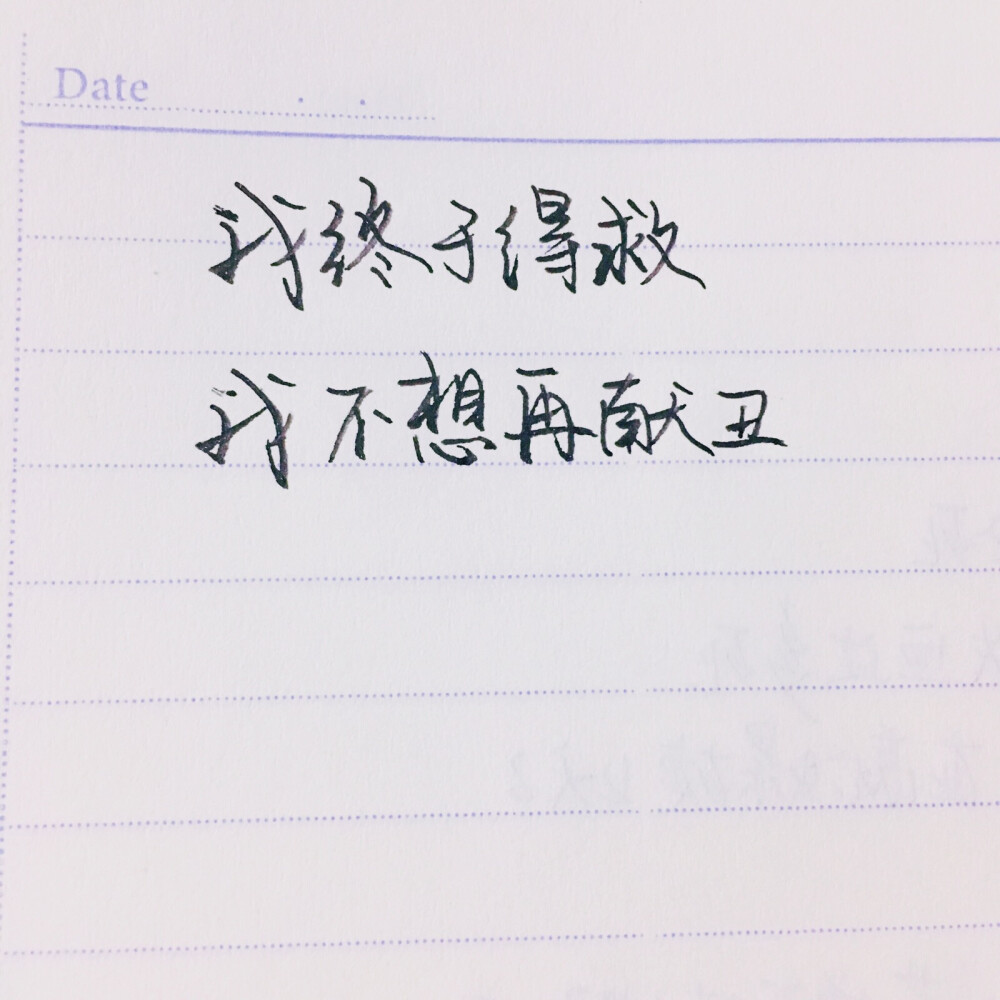 Date
我终于得救
我不想再献丑